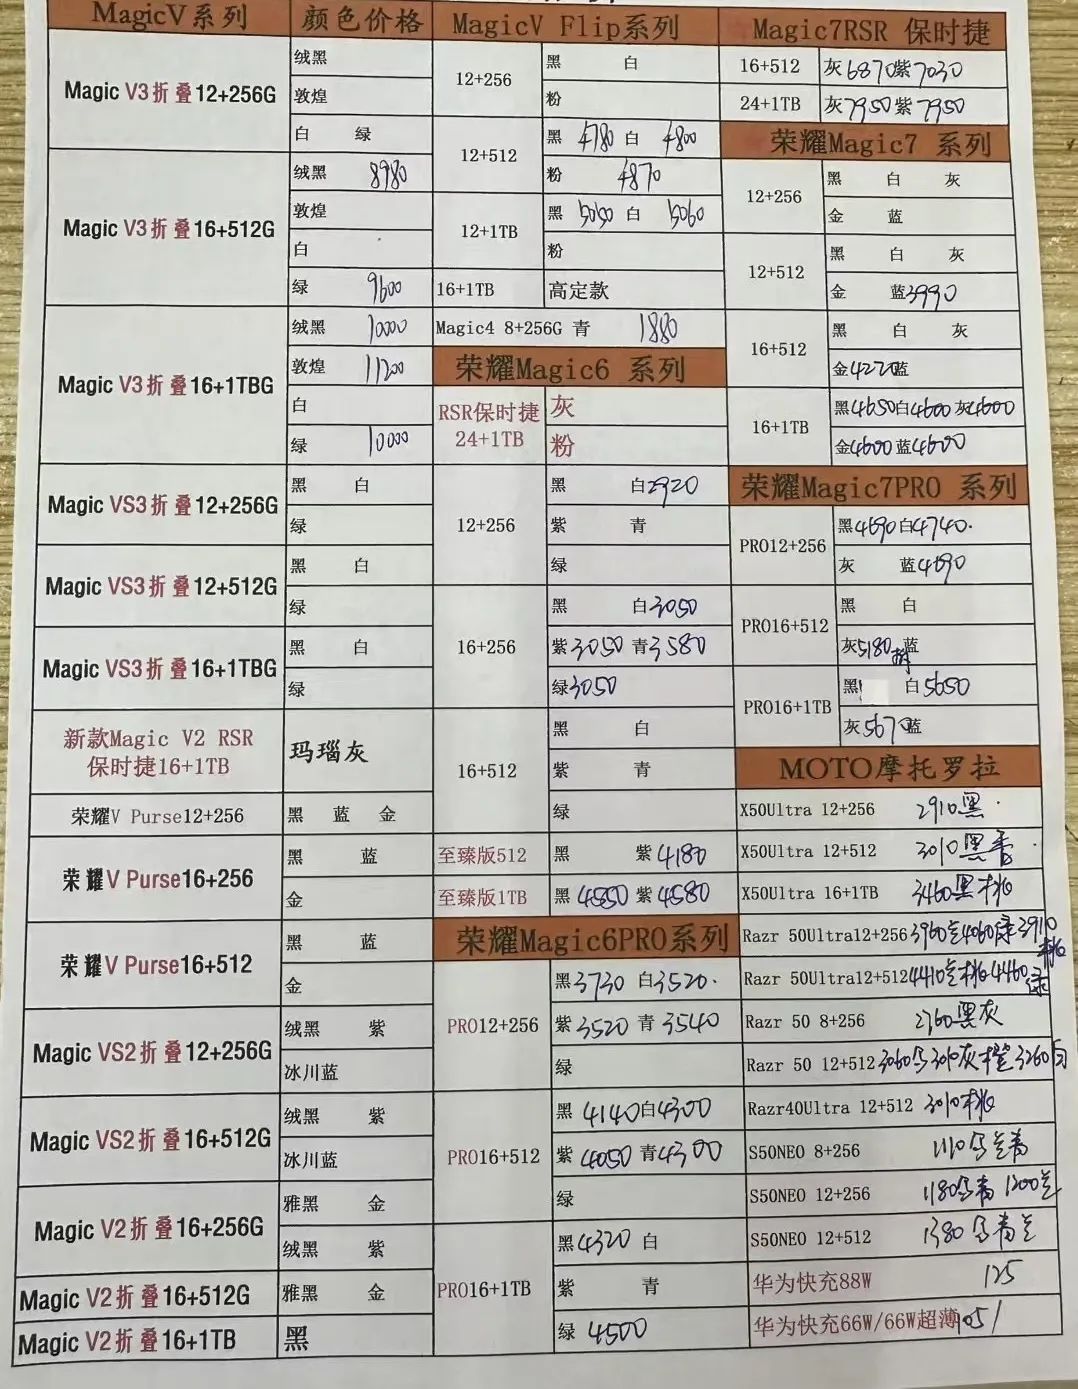 MagicV系列 颜色价格
Magic V3折叠12+256G
绒黑
敦煌
白 绿
Magic V3折叠16+512G
绒黑 8980
敦煌
白
绿 9600
Magic V3折叠16+1TBG
绒黑 10000
敦煌 11200
白
绿 10000
Magic VS3折叠12+256G
黑 白
绿
Magic VS3折叠12+512G
黑 白
绿
Magic VS3折叠16+1TBG
黑 白
绿
新款Magic V2 RSR
保时捷16+1TB
玛瑙灰
荣耀V Purse12+256 黑 蓝 金
荣耀V Purse16+256
黑 蓝
金
荣耀V Purse16+512
黑 蓝
金
Magic VS2折叠12+256G
绒黑 紫
冰川蓝
Magic VS2折叠16+512G
绒黑 紫
冰川蓝
Magic V2折叠16+256G
雅黑 金
绒黑 紫
Magic V2折叠16+512G 雅黑 金
Magic V2折叠16+1TB 黑
MagicV Flip系列
12+256
黑 白
粉
12+512
黑 4780 白 4800
粉 4870
12+1TB
黑 5050 白 5060
粉
16+1TB 高定款
Magic4 8+256G 青 1880
荣耀Magic6 系列
RSR保时捷
24+1TB
灰
粉
12+256
黑 白2920
紫 青
绿
16+256
黑 白3050
紫3050 青3580
绿3050
16+512
黑 白
紫 青
绿
至臻版512 黑 紫4180
至臻版1TB 黑 4550 紫4580
荣耀Magic6PRO系列
PRO12+256
黑3730 白3520
紫3520 青3540
绿
PRO16+512
黑 4140白4300
紫 4050 青4300
绿
PRO16+1TB
黑4320 白
紫 青
绿 4500
Magic7RSR 保时捷
16+512 灰6870紫7030
24+1TB 灰7950紫7950
荣耀Magic7 系列
12+256
黑 白 灰
金 蓝
12+512
黑 白 灰
金 蓝3990
16+512
黑 白 灰
金4270蓝
16+1TB
黑4650白4600灰4600
金4600蓝4600
荣耀Magic7PRO 系列
PRO12+256
黑4690白4740
灰 蓝4690
PRO16+512
黑 白
灰5180 蓝
PRO16+1TB
黑 白5650
灰567 蓝
MOTO摩托罗拉
X50Ultra 12+256 2910黑
X50Ultra 12+512 3010黑
X50Ultra 16+1TB 3460黑桃
Razr 50Ultra12+256 3960兰4060绿3910桃
Razr 50Ultra12+512 4410兰桃4460绿
Razr 50 8+256 2760黑灰
Razr 50 12+512 3060 3010灰橙3260白
Razr40Ultra 12+512 3010桃
S50NEO 8+256 1110 兰青
S50NEO 12+256 1180 青 1200兰
S50NEO 12+512 1380 青兰
华为快充88W 125
华为快充66W/66W超薄 105/